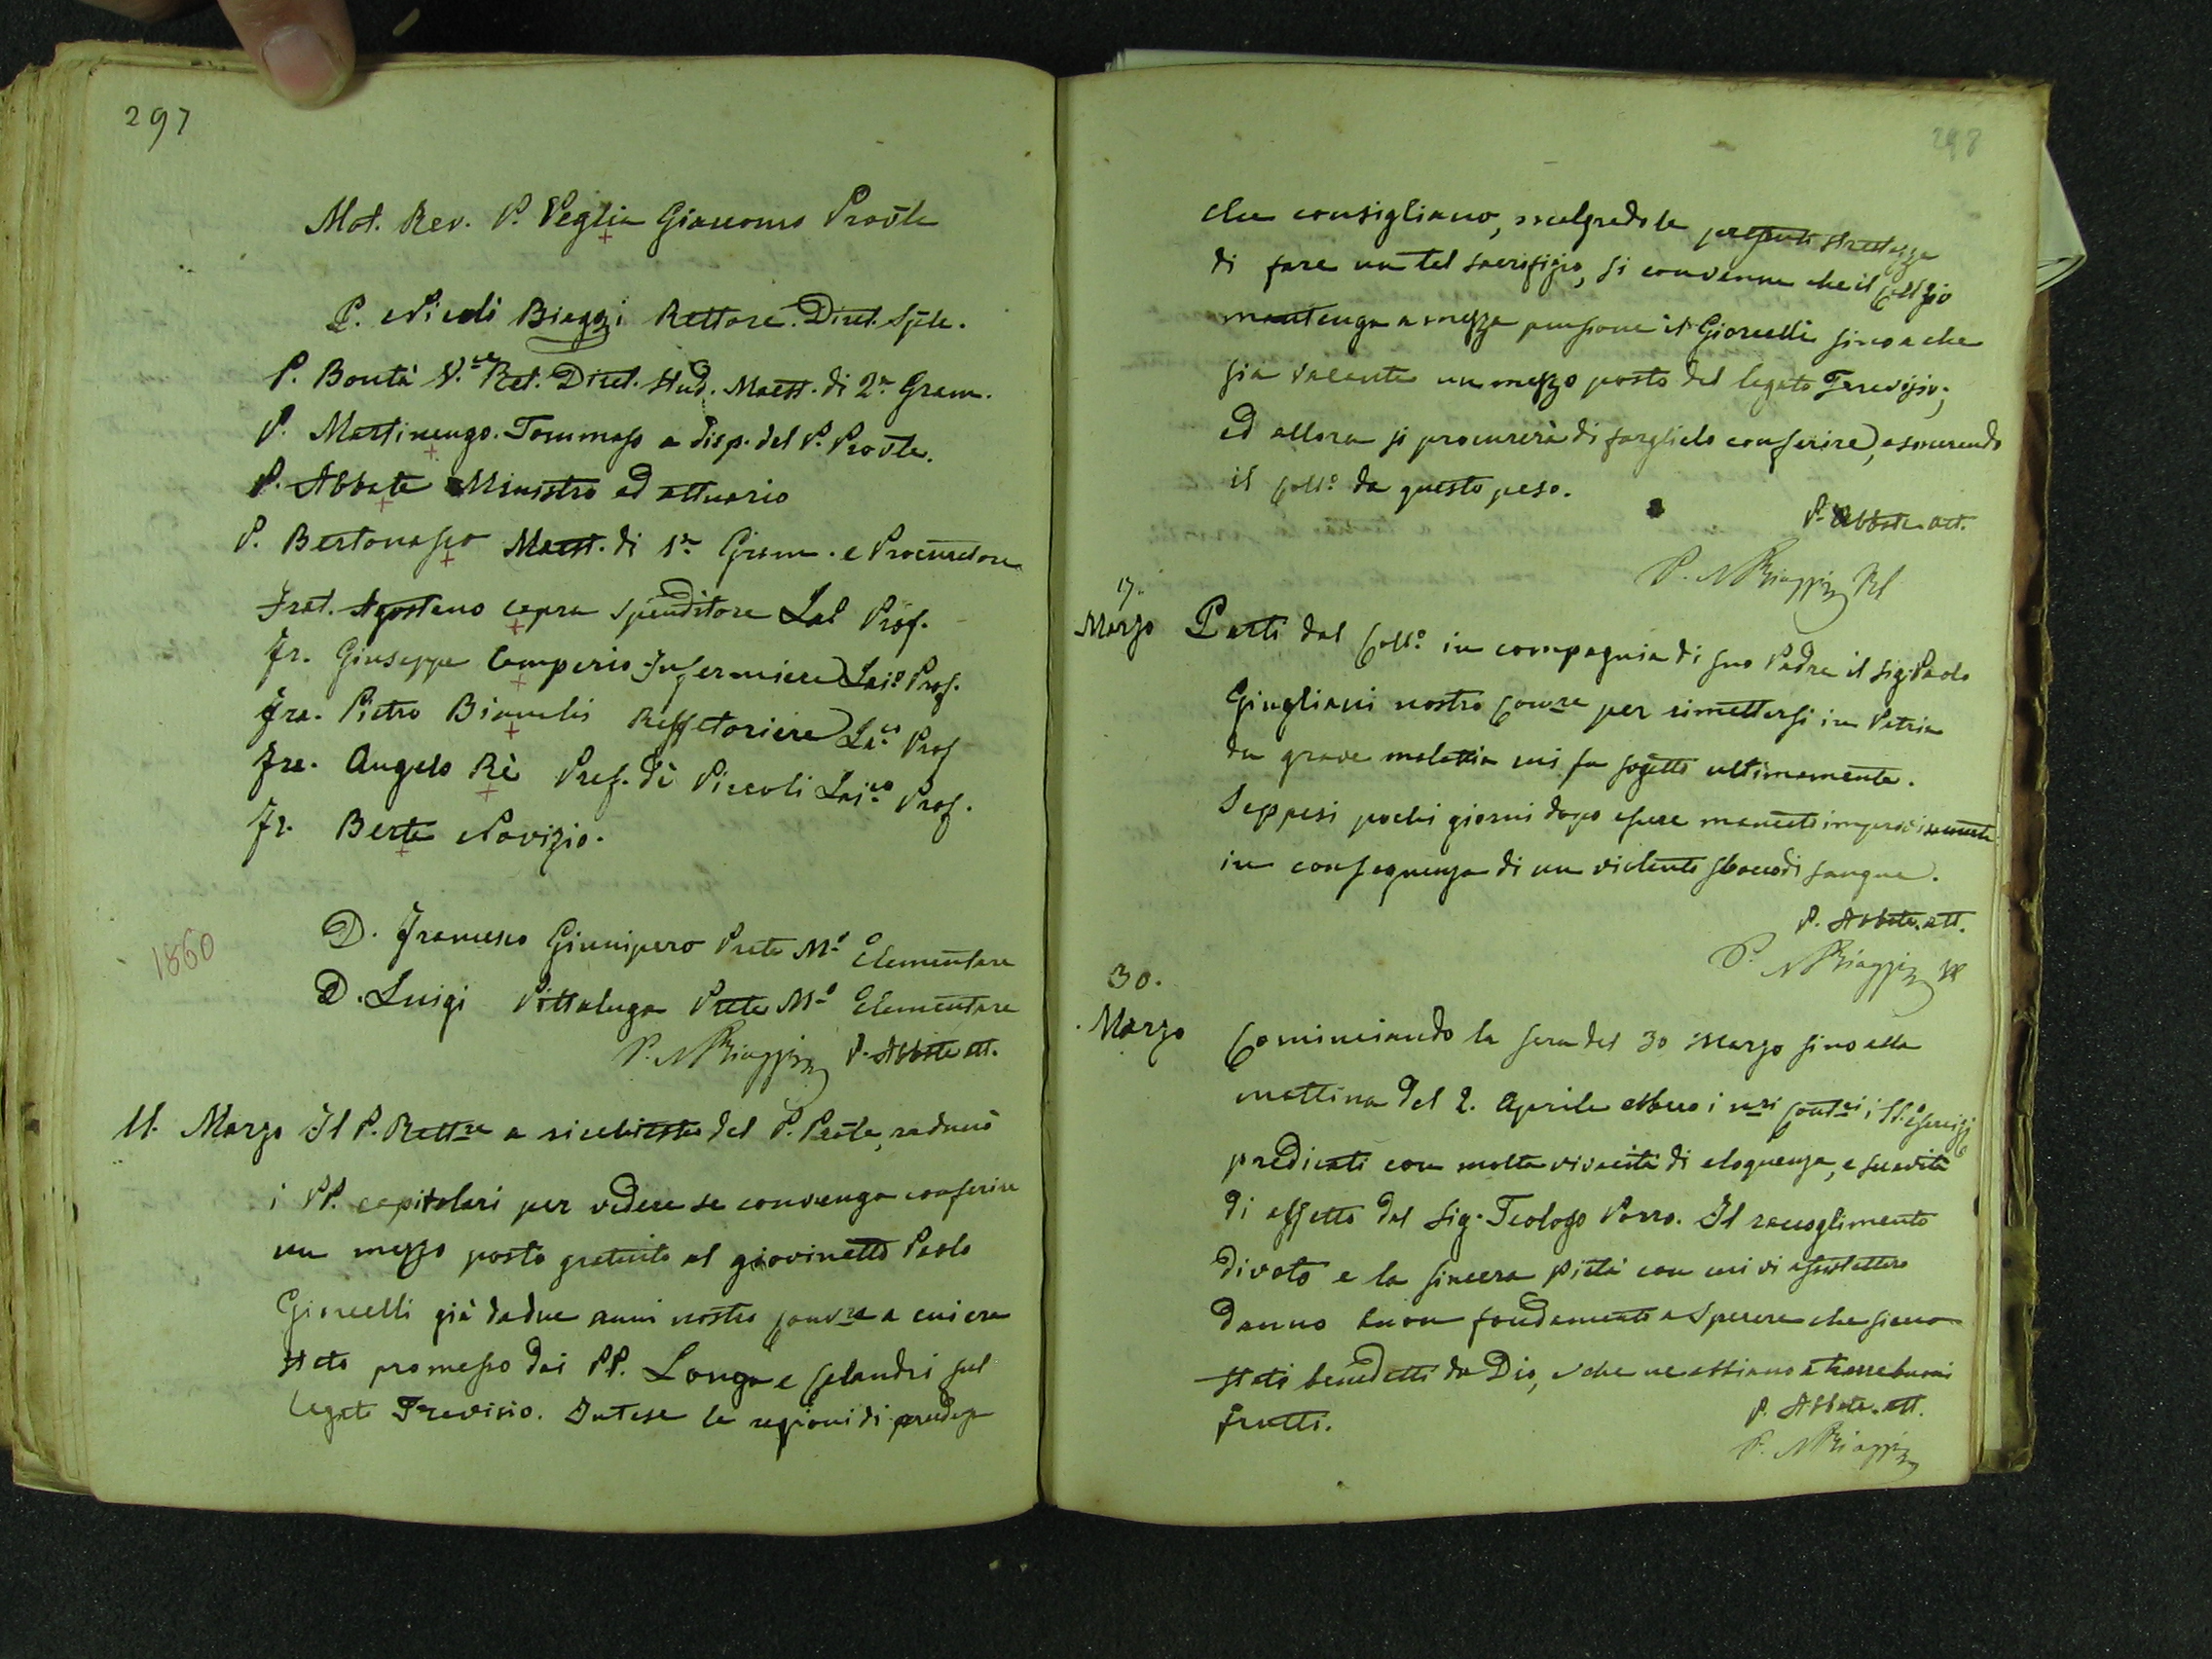 297
Mol. Rev. P. Veglia Giacomo Provle
P. Nicolò Biaggi Rettore. Diret. Sple.
P. Bontà V.ce Ret. Diret. Stud. Maest. di 2a Gram.
P. Martinengo. Tommaso a disp. del P. Provle.
P. Abbate Ministro ed attuario
P. Bertonasco Maest. di 1a Gram. e Procuratore
Frat. Agostino Capra Spenditore Lai Prof.
Fr. Giuseppe Camperio Infermiere Laio Prof.
Fra. Pietro Bianchi Reffetoriere Laco Prof
Fra. Angelo Rè Pref. dè Piccoli Laico Prof.
Fr. Berta Novizio.
1860
D. Francesco Giunipero Prete Mo Elementare
D. Luigi Pittaluga Prete Mo Elementare
P. N Biaggi P. Abbate att.
11. Marzo Il P. Rettre a richiesta del P. Prole, radunò
i PP. capitolari per vedere se convenga conferire
un mezzo posto gratuito al giovinetto Paolo
Gioncelli già da due anni nostro convre a cui era
stato promesso dai PP. Longa e Calandri sul
legato Trevisio. Intese le ragioni di prudenza
298
che consigliano, malgrado le presenti strettezze
di fare un tal sacrifizio, si convenne che il Collegio
mantenga a mezza pensione il Gioncelli sino a che
sia vacante un mezzo posto del legato Trevisio;
ed allora si procurerà di farglielo conferire, esonerando
il Collo da questo peso.
P. Abbate att.
P. N Biaggi Rt
17.
Marzo Partì dal Collo in compagnia di suo Padre il Sig. Paolo
Giugliani nostro Convre per rimettersi in Patria
da grave malattia cui fu sogetto ultimamente.
Seppesi pochi giorni dopo essere mancato improvisamente
in conseguenza di un violento sbocco di sangue.
P. Abbate. att.
P. N Biaggi
30.
Marzo Cominciando la sera del 30 Marzo sino alla
mattina del 2. Aprile ebbero i nri Convri i SS. esercizj
predicati con molta vivacità di eloquenza, e suavità
di affetto dal Sig. Teologo Porro. Il raccoglimento
divoto e la sincera pietà con cui vi assistettero
danno buon fondamento a sperare che siano
stati benedetti da Dio, e che ne abbiano a trarre buoni
frutti.
P. Abbate. att.
P. N Biaggi